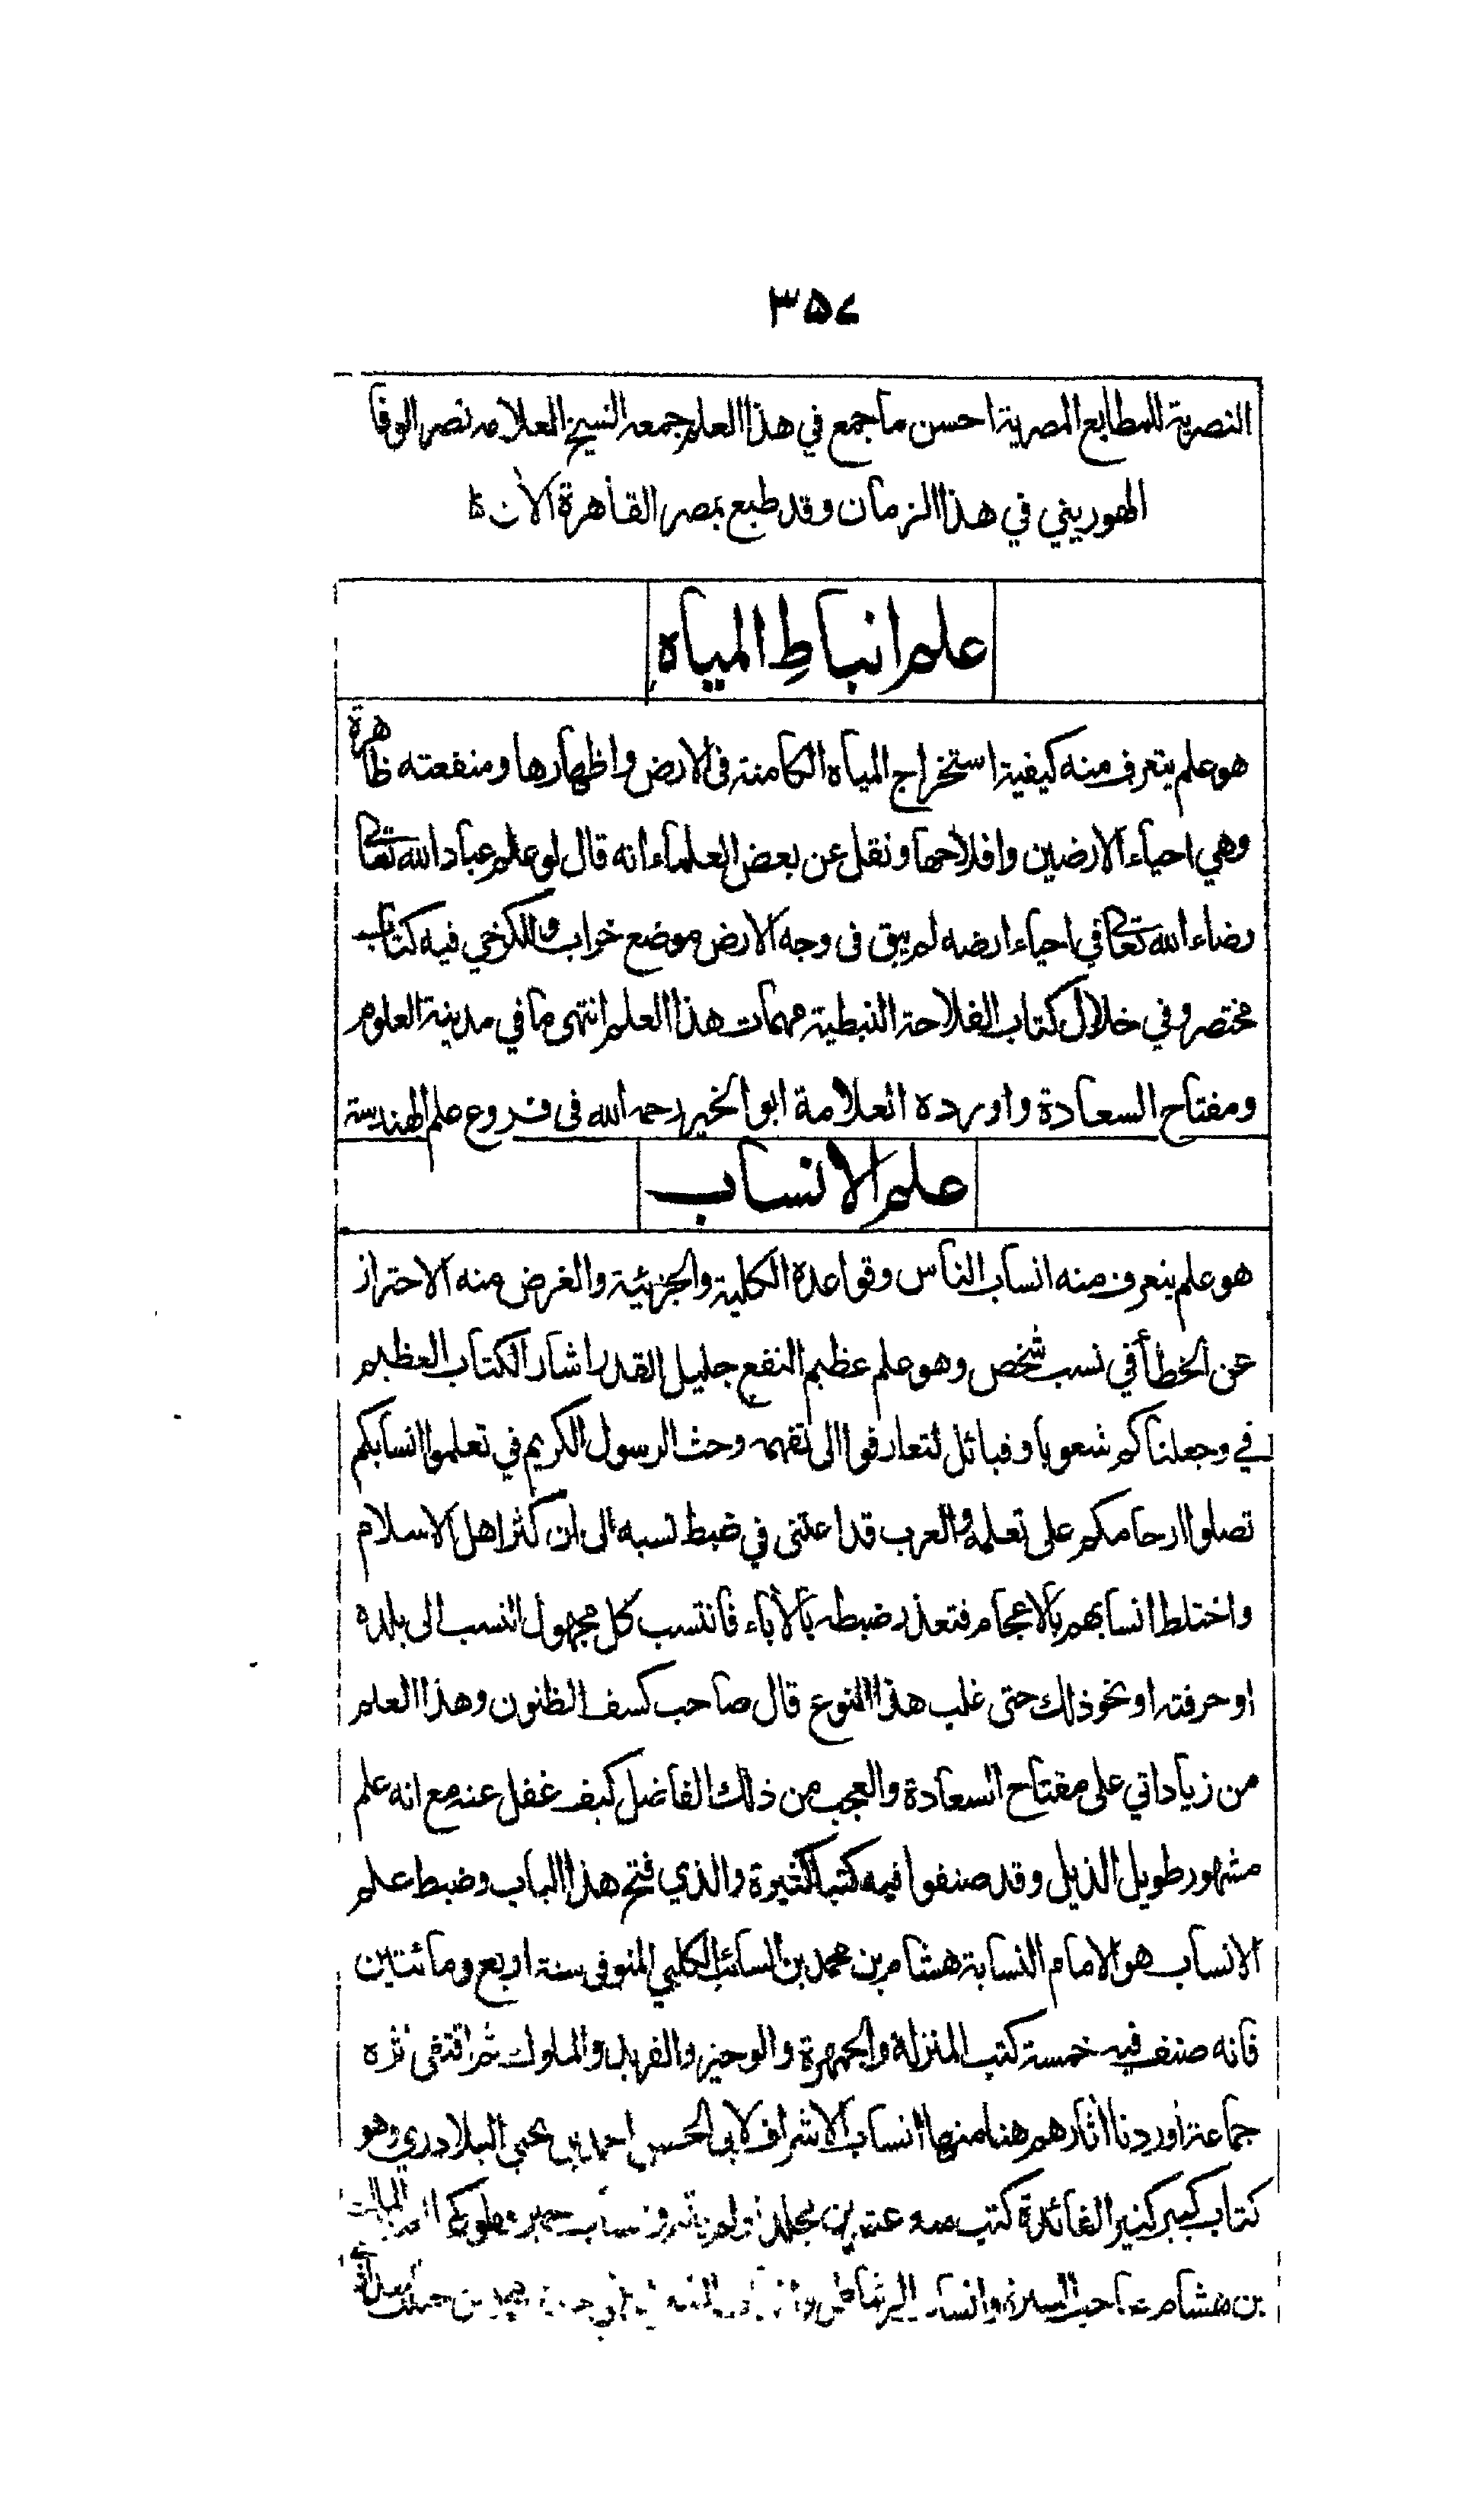 ٣٥٤
النصرية للمطابع المصرية احسن ماجمع في هذا العلم جمعه الشيخ العلامه نصر الوفا
الهوريني في هذا الزمان وقد طبع بمصر القاهرة الآن
علم انباطِ المياه
هو علم يتعرف منه كيفية استخراج المياه الكامنة فى الارض واظهارها ومنفعته ظاهرة
وهي احياء الارضين وافلاحها ونقل عن بعض العلماء انه قال لو علم عباد الله تعالى
رضاء الله تعالى في احياء ارضه لم يبق فى وجه الارض موضع خراب وللكرخي فيه كتاب
مختصر وفي خلال كتاب الفلاحة النبطية مهمات هذا العلم انتهى ما في مدينة العلوم
ومفتاح السعادة واورده العلامة ابو الخير رحمه الله فى فروع علم الهندسة
علم الانساب
هو علم يتعرف منه انساب الناس وقواعده الكلية والجزئية والغرض منه الاحتراز
عن الخطأ في نسب شخص وهو علم عظيم النفع جليل القدر اشار الكتاب العظيم
في وجعلناكم شعوبا وقبائل لتعارفوا الى تفهمه وحث الرسول الكريم في تعلموا انسابكم
تصلوا ارحامكم على تعلمه والعرب قد اعتنى في ضبط نسبه الى ان كثر اهل الاسلام
واختلط انسابهم بالاعجام فتعذر ضبطه بالآباء فانتسب كل مجهول النسب الى بلده
او حرفته او نحو ذلك حتى غلب هذا النوع قال صاحب كشف الظنون وهذا العلم
من زياداتي على مفتاح السعادة والعجب من ذلك الفاضل كيف غفل عنه مع انه علم
مشهور طويل الذيل وقد صنفوا فيه كتبا كثيرة والذي فتح هذا الباب وضبط علم
الانساب هو الامام النسابة هشام بن محمد بن السائب الكلبي المتوفى سنة اربع ومائتين
فانه صنف فيه خمسة كتب المنزلة والجمهرة والوجيز والفريد والملوك ثم اقتفى اثره
جماعة اوردنا اثارهم هنا منها انساب الاشراف لابى الحسن احمد بن يحيى البلاذري وهو
كتاب كبير كثير الفائدة كتب منه عشرين مجلدا ولم يتم وانساب حمير وملوكها
بن هشام صاحب السيرة وانساب الرشاطي